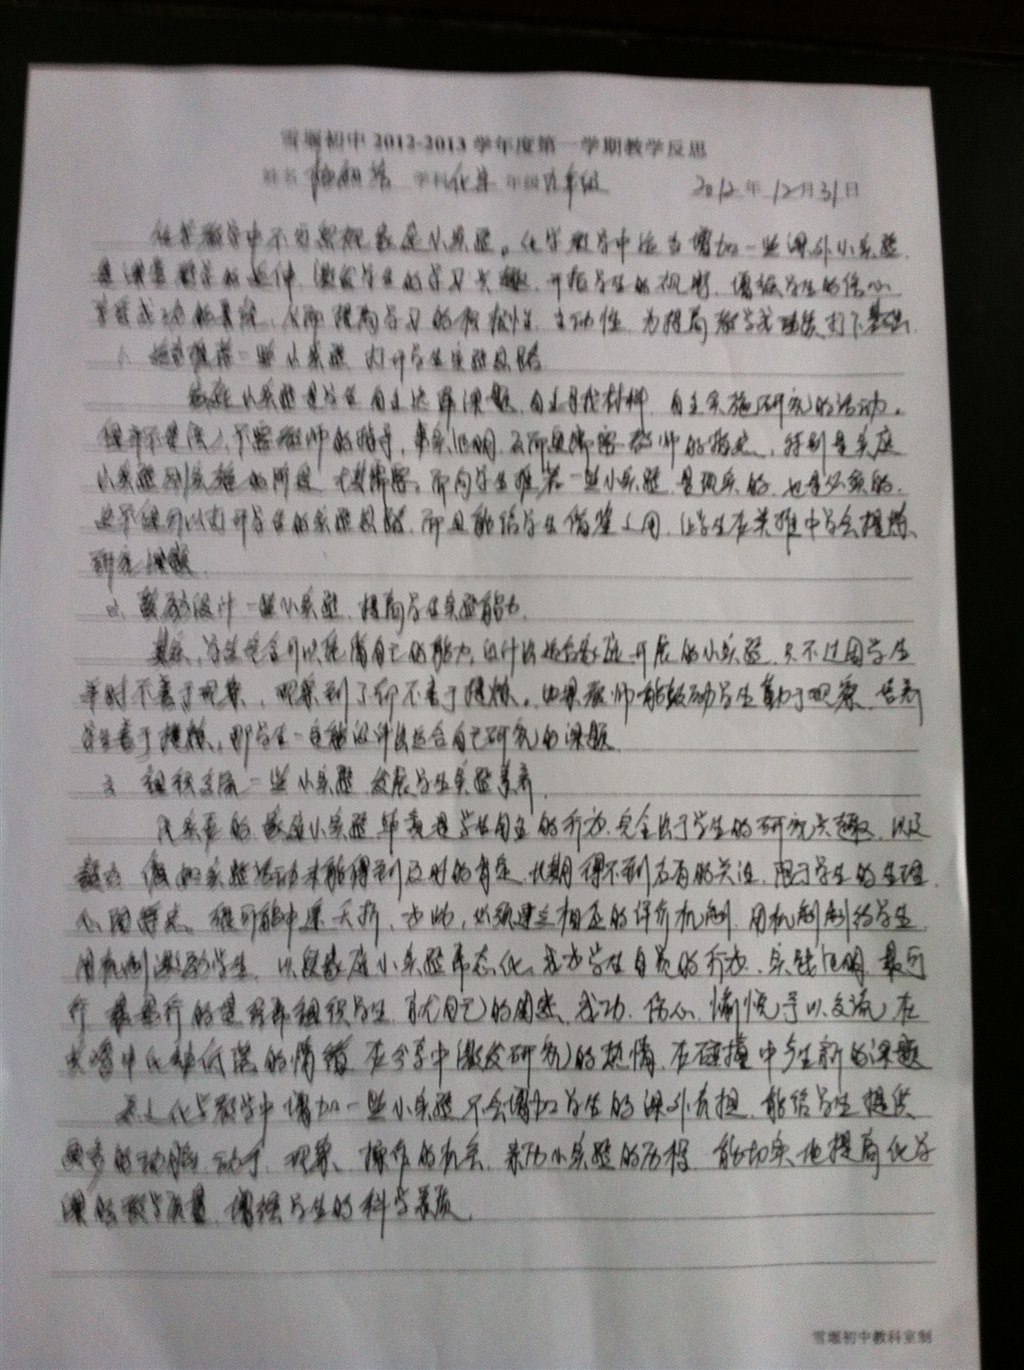 雪堰初中 2012-2013 学年度第一学期教学反思
姓名 学科 化学 年级 九年级 2012 年 12 月 31 日
化学教学中不可忽视家庭小实验。化学教学中适当增加一些课外小实验,
是课堂教学的延伸,激发学生的学习兴趣,开拓学生的视野,增强学生的信心,
享受成功的喜悦,从而提高学习的积极性、主动性,为提高教学成绩打下基础。
1. 推荐一些小实验,打开学生实验思路
家庭小实验是学生自主选择课题、自主寻找材料、自主实施研究的活动。
但并不是说不需教师的指导,事实证明,反而更需要教师的指点,特别是家庭
小实验刚实施的阶段,尤其需要。而向学生推荐一些小实验,是现实的,也是必须的。
这不但可以打开学生的实验思路,而且能给学生借鉴之用,让学生在类推中学会提炼
研究课题。
2. 鼓励设计一些小实验,提高学生实验能力
其实,学生完全可以凭借自己的能力,设计出适合家庭开展的小实验,只不过因学生
平时不善于观察,观察到了却不善于提炼。如果教师能鼓励学生勤于观察,培养
学生善于提炼,那学生一定能设计出适合自己研究的课题。
3. 组织交流一些小实验,发展学生实验素养
的家庭小实验毕竟是学生自主的行为,完全出于学生的研究兴趣,以及
假如实验活动未能得到及时的肯定,长期得不到应有的关注,限于学生的生理、
心理特点,很可能中途夭折,为此,必须建立相应的评价机制,用机制制约学生,
用机制激励学生,以使家庭小实验常态化,成为学生自觉的行为。实践证明,最可
行、最易行的是经常组织学生,就自己的困惑、成功、信心、愉悦予以交流,在
中化解低落的情绪,在分享中激发研究的热情,在碰撞中产生新的课题。
总之,化学教学中增加一些小实验,不会增加学生的课外负担,能给学生提供
更多的动脑、动手、观察、操作的机会,亲历小实验的历程,能切实地提高化学
课的教学质量,增强学生的科学素质。
雪堰初中教科室制